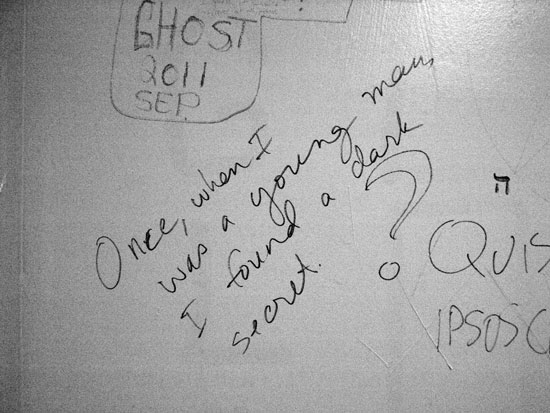 GHOST
2011
SEP.
Once, when I
was a young man,
I found a dark
secret.
?
ה
QUIS
IPSOS C